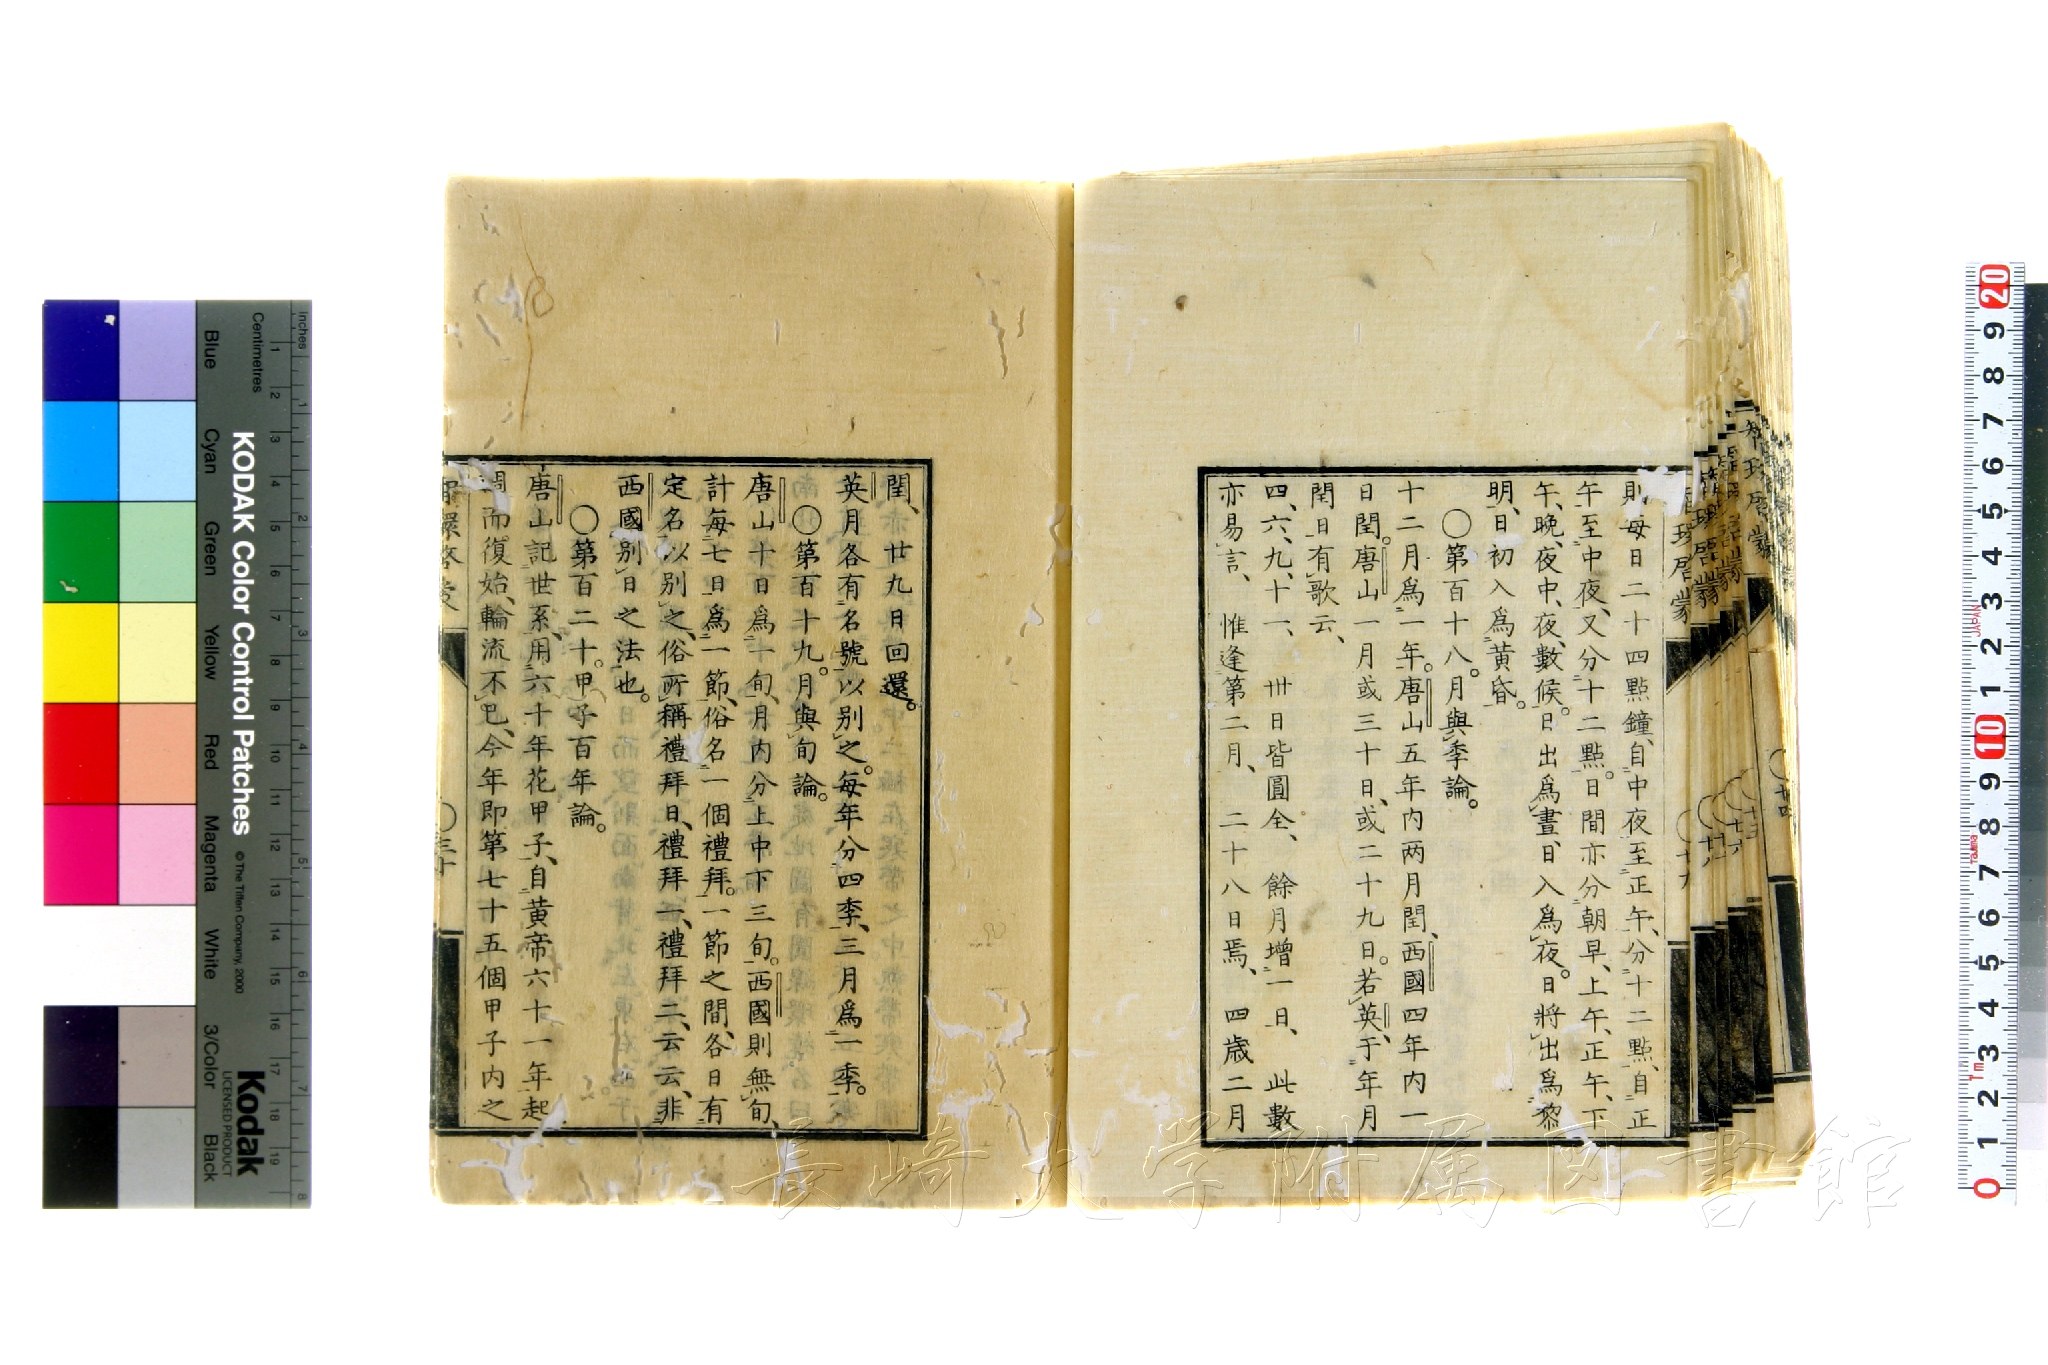 則每日二十四點鐘、自中夜至正午、分十二點、自正
午至中夜、又分十二點。日間亦分朝早、上午、正午、下
午、晚、夜、中夜、數候。日出爲晝、日入爲夜。日將出爲黎
明、日初入爲黃昏。
〇第百十八。月與季論。
十二月爲一年。唐山五年內兩月閏、西國四年內一
日閏。唐山一月或三十日、或二十九日。若英、于年月
閏日有歌云、
四、六、九、十一、 卅日皆圓全、 餘月增一日、 此數
亦易言、 惟逢第二月、 二十八日焉、 四歲二月
閏、亦廿九日回還。
英月各有名號以別之。每年分四季、三月爲一季。
〇第百十九。月與旬論。
唐山十日爲一旬、月內分上中下三旬。西國則無旬、
計每七日爲一節、俗名一個禮拜。一節之間、各日有
定名以別之、俗所稱禮拜日、禮拜一、禮拜二、云云、非
西國別日之法也。
〇第百二十。甲子百年論。
唐山記世系、用六十年花甲子、自黃帝六十一年起
週而復始、輪流不已、今年即第七十五個甲子內之
智環啓蒙
〇三十
智環啓蒙
〇十九
KODAK Color Control Patches
© The Tiffen Company, 2000
Kodak
LICENSED PRODUCT
Inches
Centimetres
Blue
Cyan
Green
Yellow
Red
Magenta
White
3/Color
Black
JAPAN
Tajima
長崎大学附属図書館